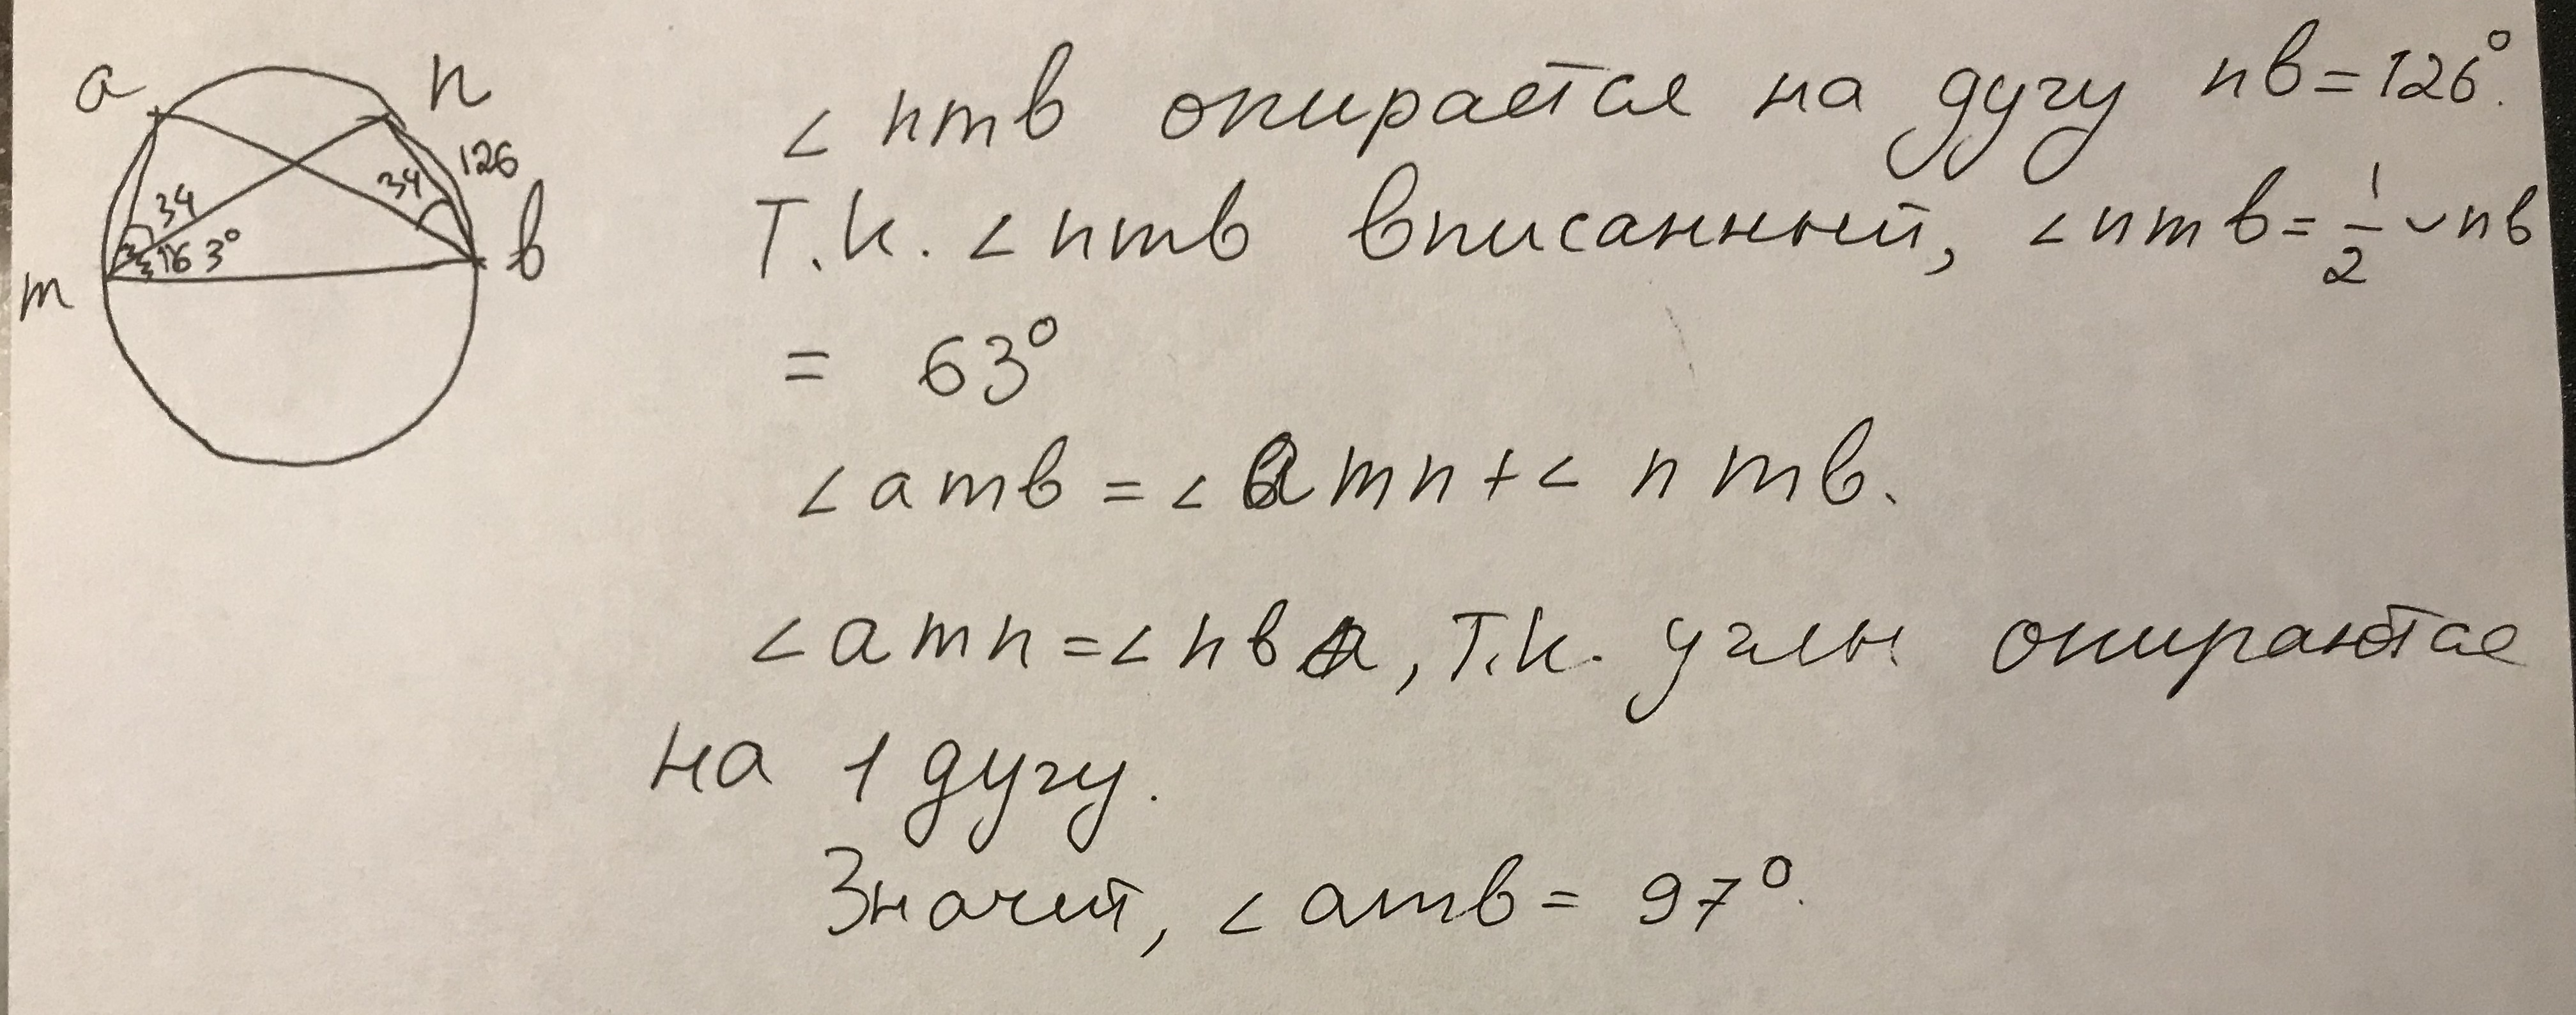 a
n
126
34
34
63°
m
b
∠ nmb опирается на дугу nb = 126°.
Т.к. ∠ nmb вписанный, ∠ nmb = 1/2 ◡ nb
= 63°
∠ amb = ∠ amn + ∠ nmb.
∠ amn = ∠ nba, т.к. углы опираются
на 1 дугу.
Значит, ∠ amb = 97°.